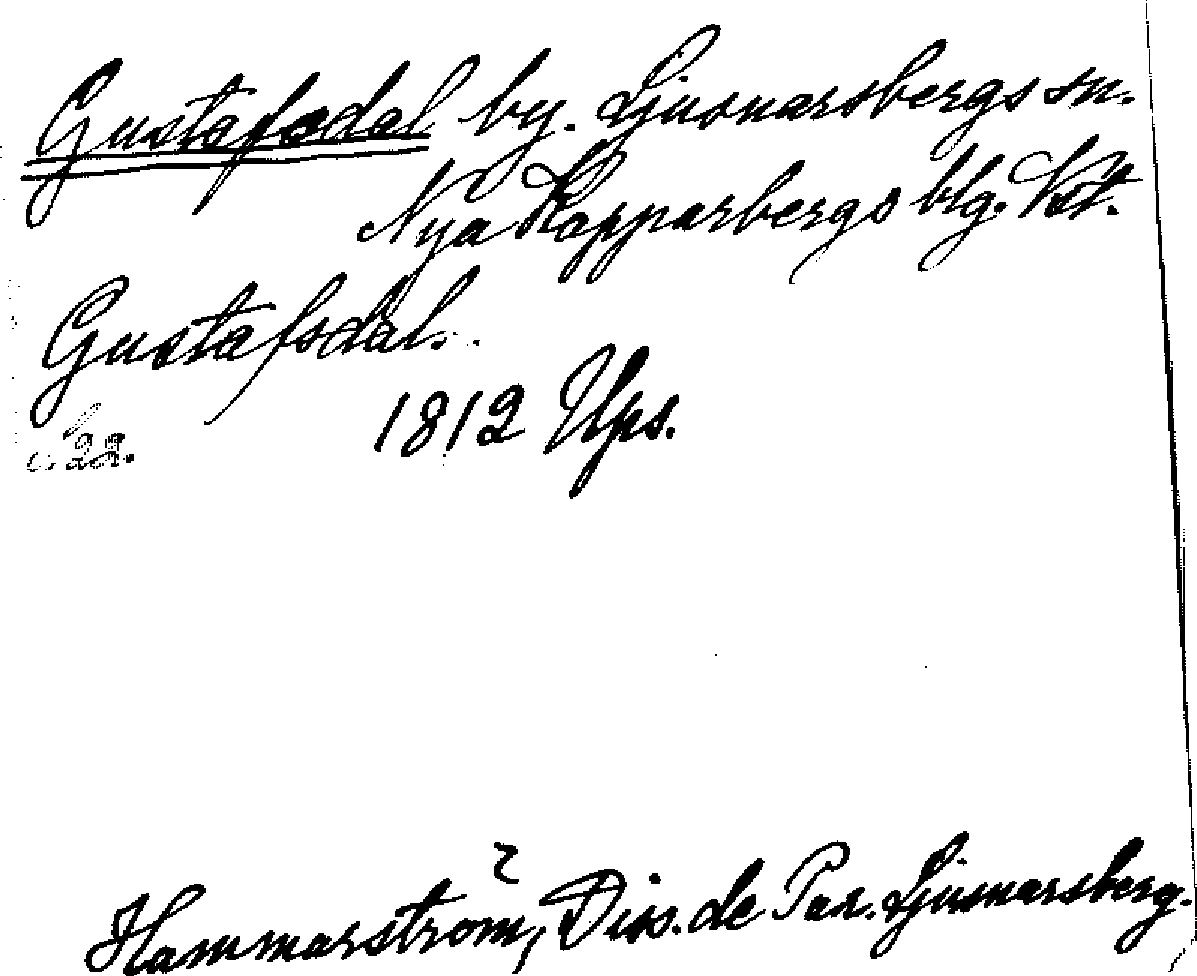 Gustafsdal by. Ljusnarsbergs sn.
Nya Kopparbergs blg. Vst.
Gustafsdal.
s. 22. 1812 Ups.
Hammarström, Diss. de Par. Ljusnarsberg.